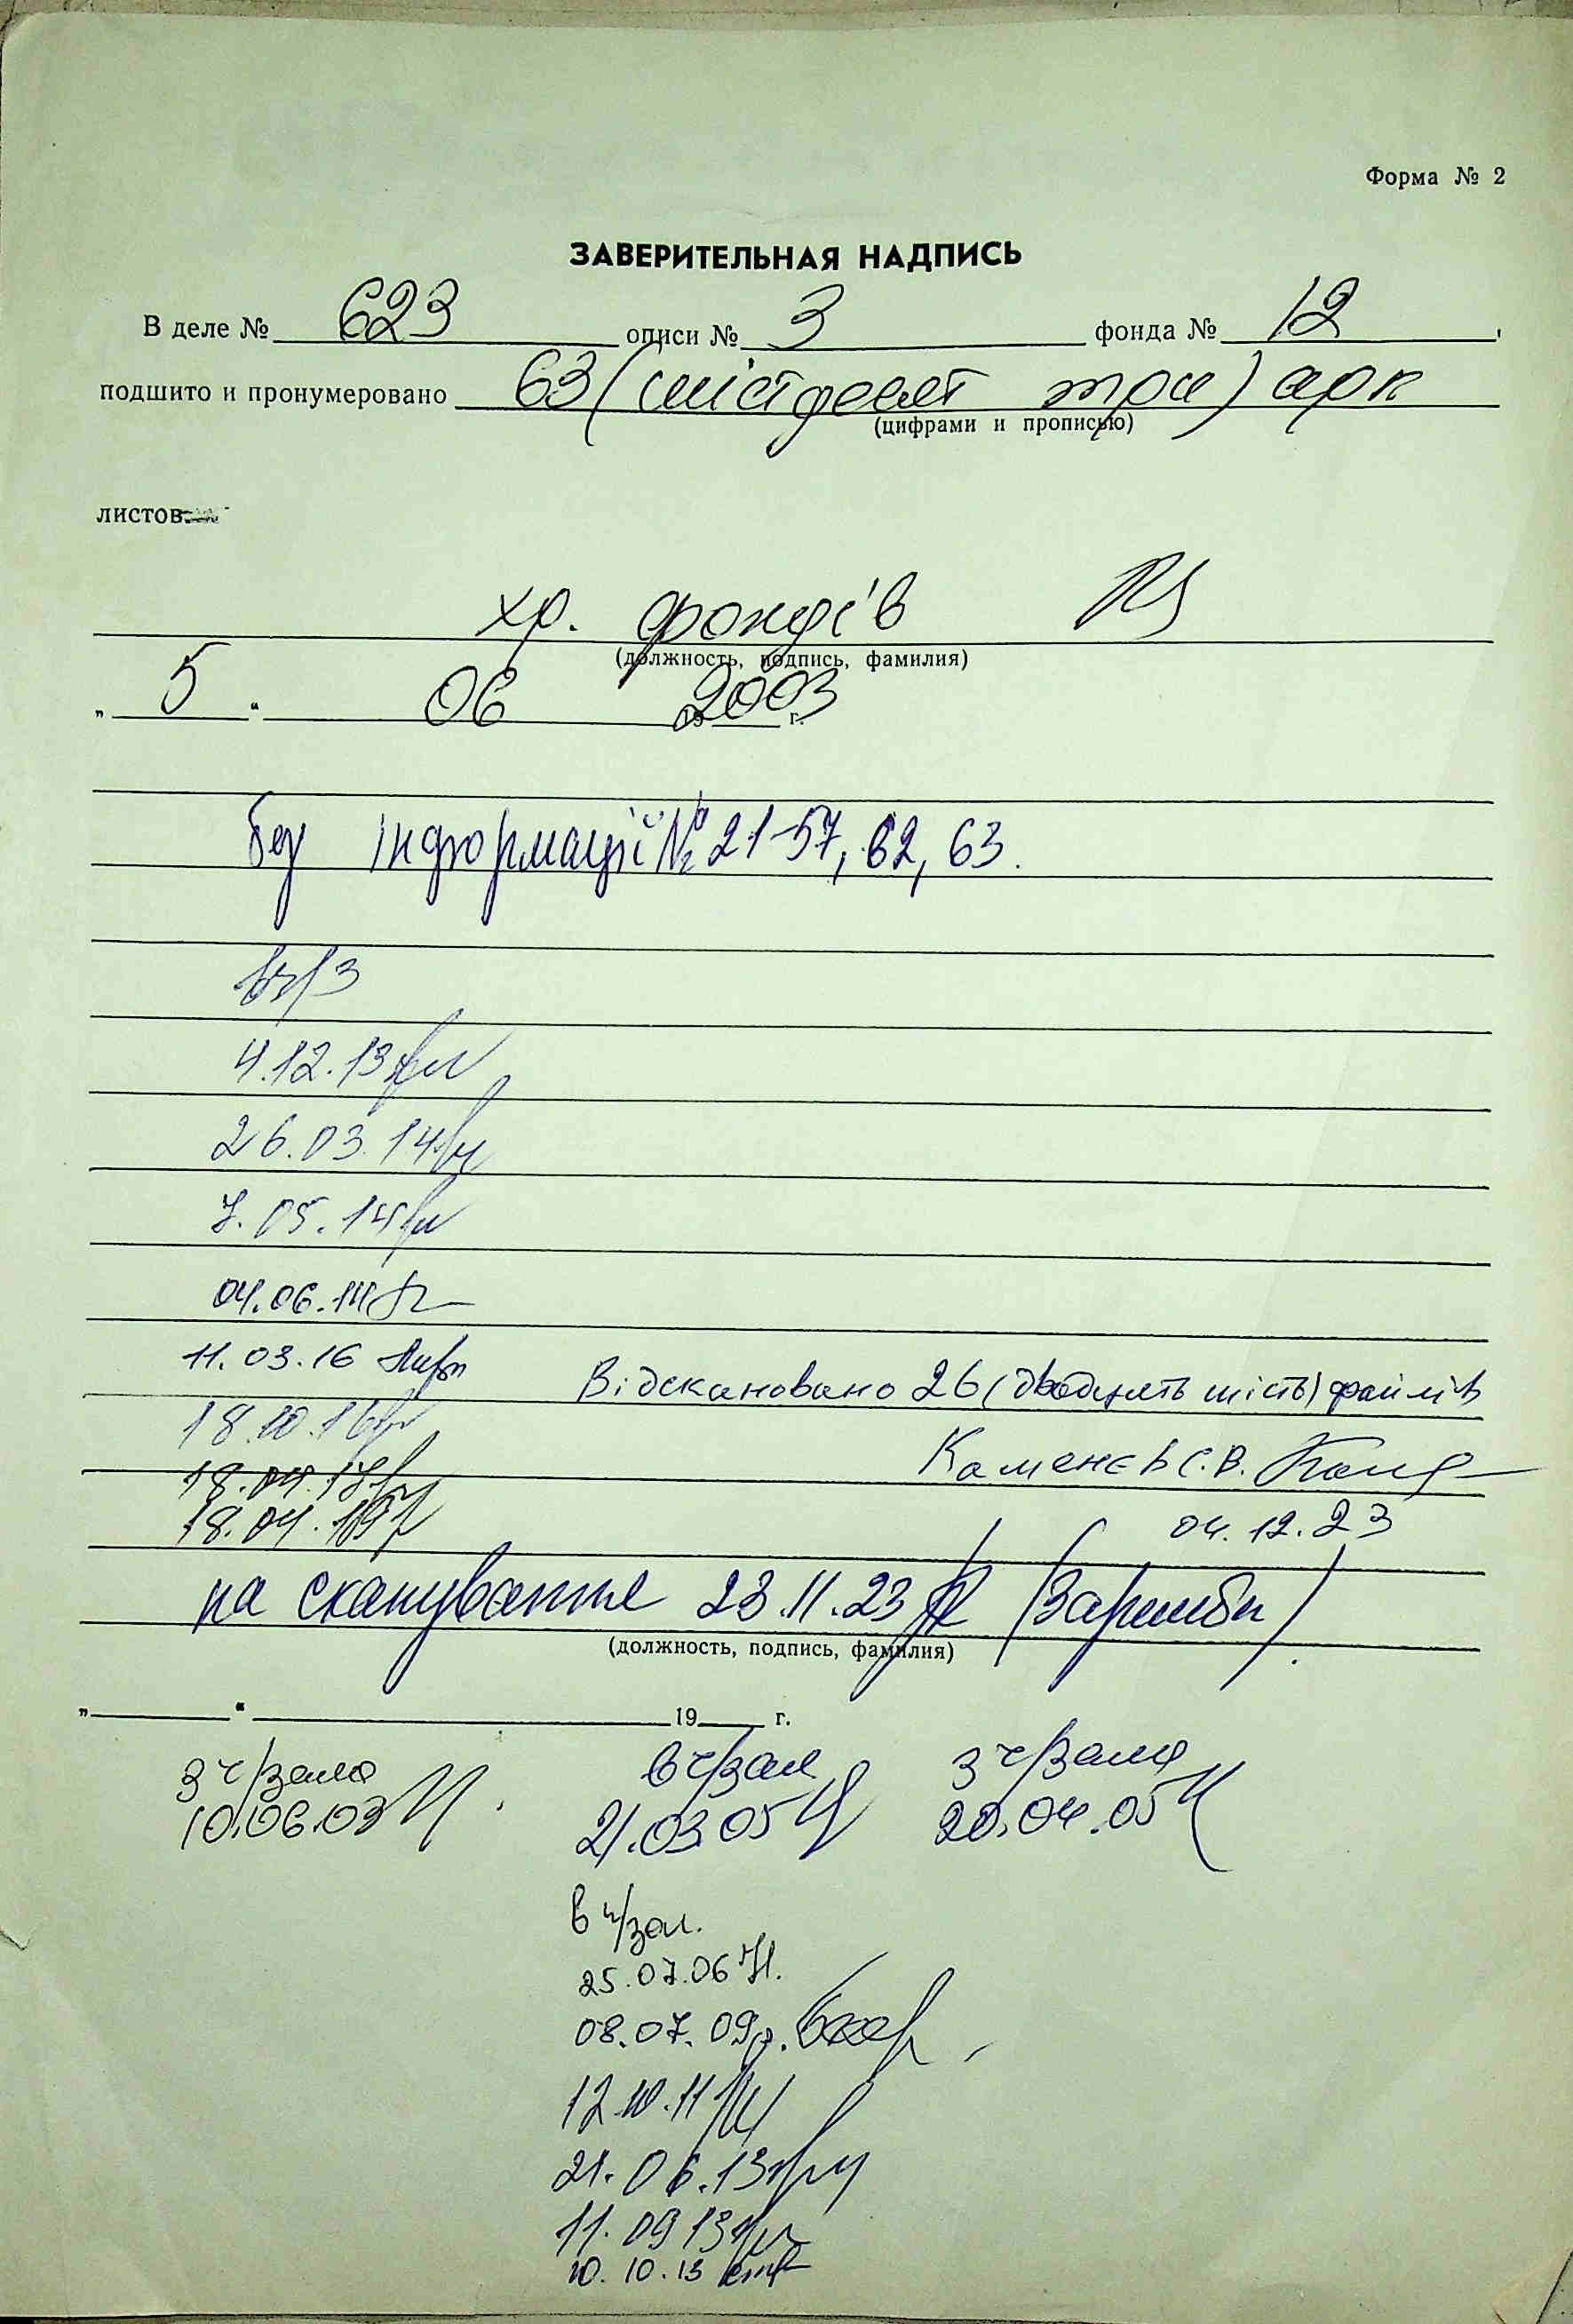 Форма № 2
ЗАВЕРИТЕЛЬНАЯ НАДПИСЬ
В деле № 623 описи № 3 фонда № 12
подшито и пронумеровано 63 (шістдесят три) арк
(цифрами и прописью)
листов
хр. фондів
(должность, подпись, фамилия)
„ 5 “ 06 2003 г.
без інформації № 21-57, 62, 63.
4.12.13
26.03.14
7.05.14
04.06.14
11.03.16
Відскановано 26 (двадцять шість) файлів
18.10.16
Каменєв С.В.
18.04.17
18.04.19
04.12.23
на сканування 23.11.23
(должность, подпись, фамилия)
„ “ 19 г.
з ч/зала в ч/зал з ч/зала
10.06.03 21.03.05 20.04.05
в ч/зал.
25.07.06
08.07.09р.
12.10.11
21.06.13
11.09 13
10.10.13